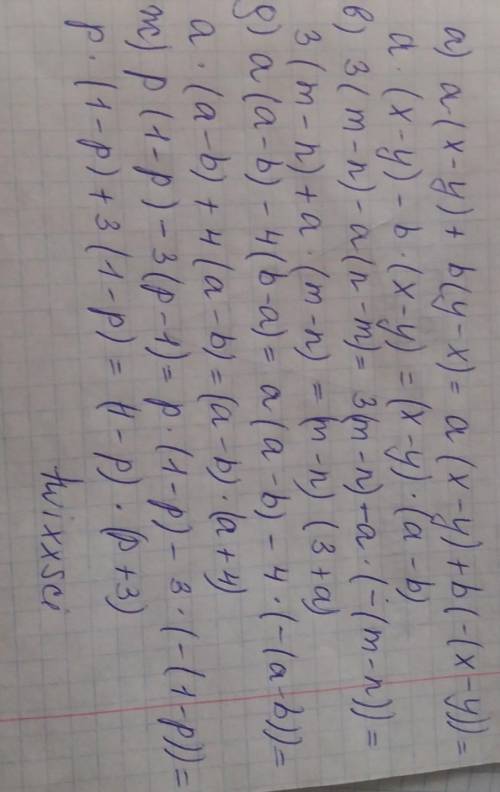 а) a(x-y)+b(y-x)=a(x-y)+b(-(x-y))=
a·(x-y)-b·(x-y)=(x-y)·(a-b)
в) 3(m-n)-a(n-m)=3(m-n)-a·(-(m-n))=
3(m-n)+a·(m-n)=(m-n)(3+a)
д) a(a-b)-4(b-a)=a(a-b)-4·(-(a-b))=
a·(a-b)+4(a-b)=(a-b)·(a+4)
ж) p(1-p)-3(p-1)=p·(1-p)-3·(-(1-p))=
p·(1-p)+3(1-p)=(1-p)·(p+3)
twixxsci